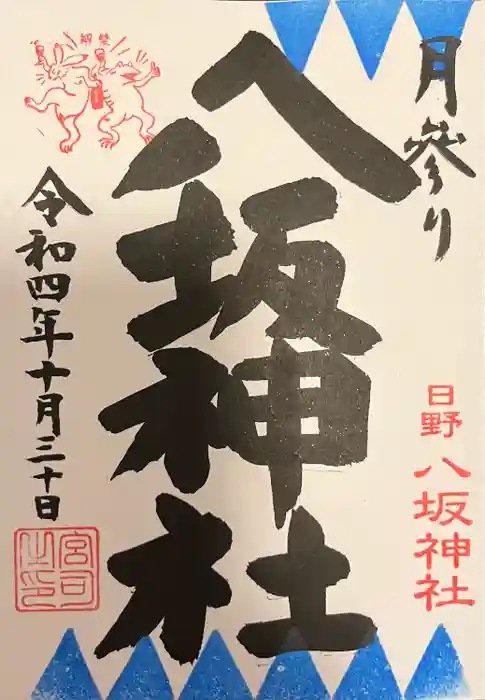 月參り
日野 八坂神社
八坂神社
令和四年十月三十日
宮司之印